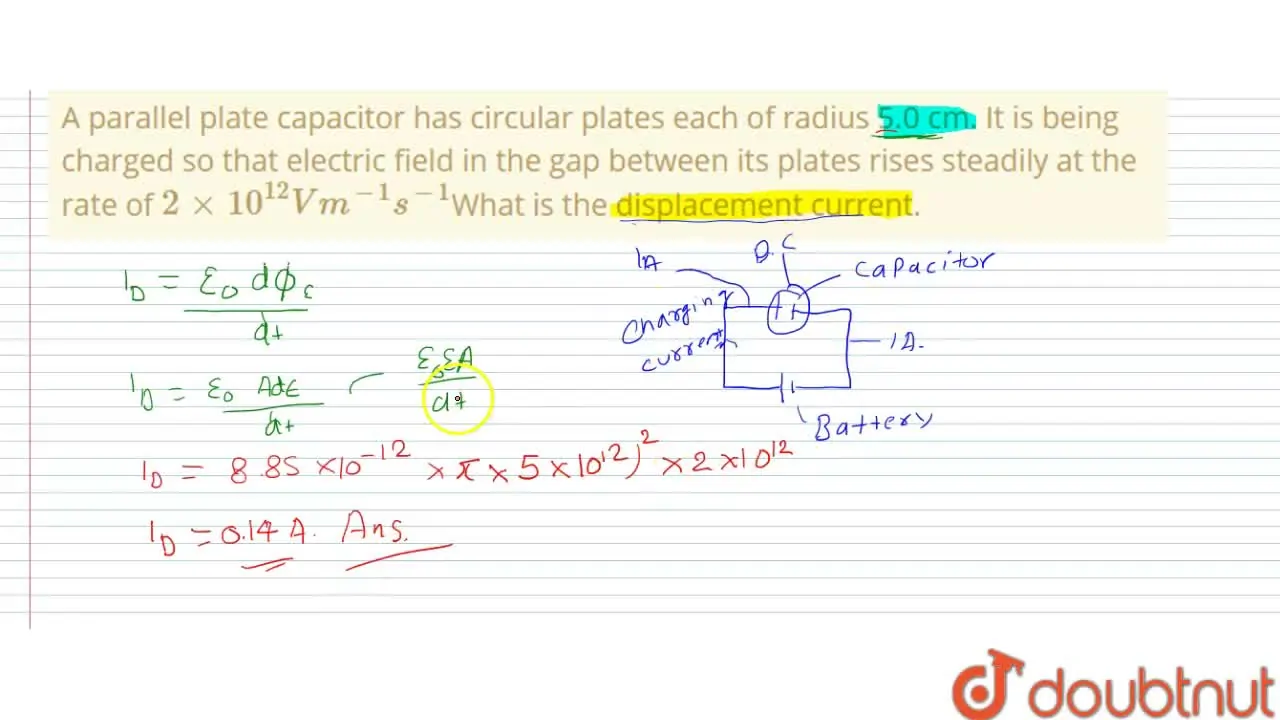 A parallel plate capacitor has circular plates each of radius 5.0 cm. It is being
charged so that electric field in the gap between its plates rises steadily at the
rate of 2 × 10¹² V m⁻¹ s⁻¹ What is the displacement current.
I_D = ε₀ dφ_ε / dt
I_D = ε₀ A dε / dt
ε₀ εA / dt
I_D = 8.85 × 10⁻¹² × π × 5 × 10¹²)² × 2 × 10¹²
I_D = 0.14 A. Ans.
1A
D.C
Capacitor
Charging
current
1A.
Battery
doubtnut